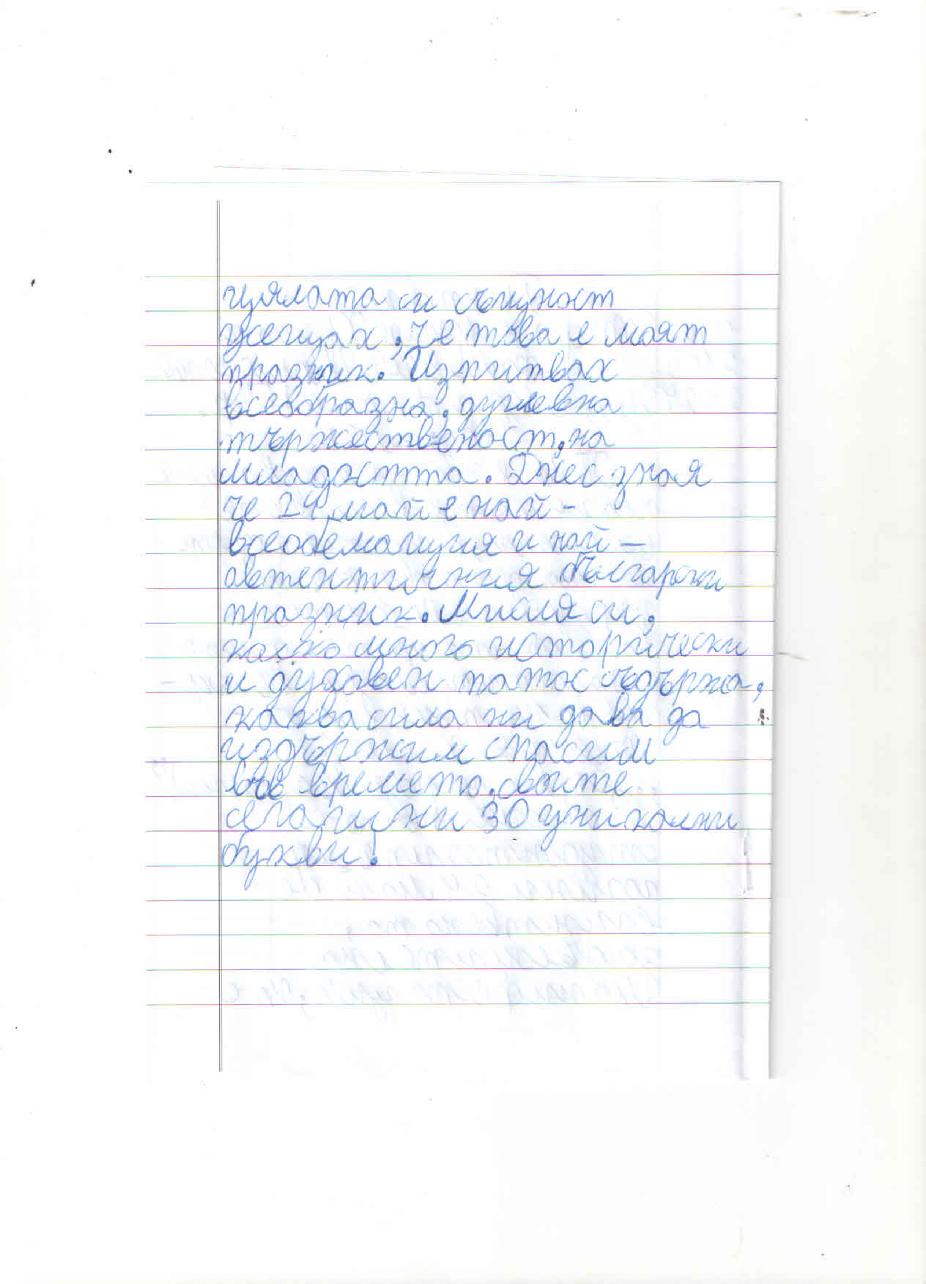 цялата си същност
усещах, че това е моят
празник. Изпитвах
всеобразна, душевна
тържественост, на
младостта. Днес зная
че 24 май е най-
всеобемащия и най-
автентичния български
празник. Мисля си,
колко много исторически
и духовен патос съдържа,
каква сила ни дава да
издържим спасим
във времето, своите
сегашни 30 уникални
букви!